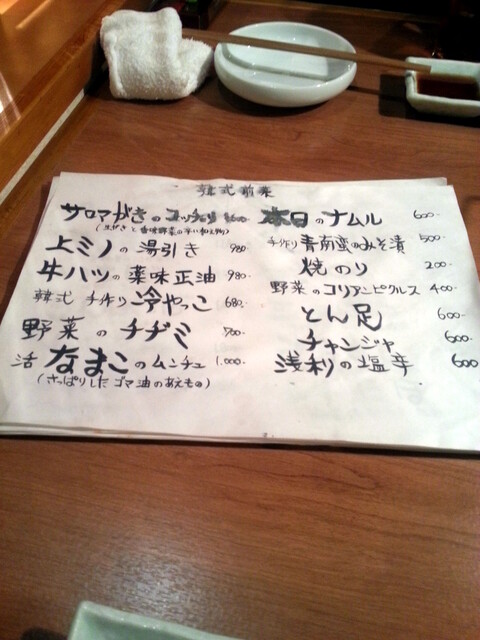 韓式前菜
サロマがきのコッチョリ
(生がきと香味野菜の辛い和え物)
上ミノの湯引き 980.
牛ハツの薬味正油 980.
韓式 手作り冷やっこ 680.
野菜のチヂミ
活なまこのムンチュ 1,000.
(さっぱりしたゴマ油のあえもの)
本日のナムル 600.
手作り青南蛮のみそ漬 500.
焼のり 200.
野菜のコリアンピクルス 400.
とん足 600.
チャンジャ 600.
浅利の塩辛 600